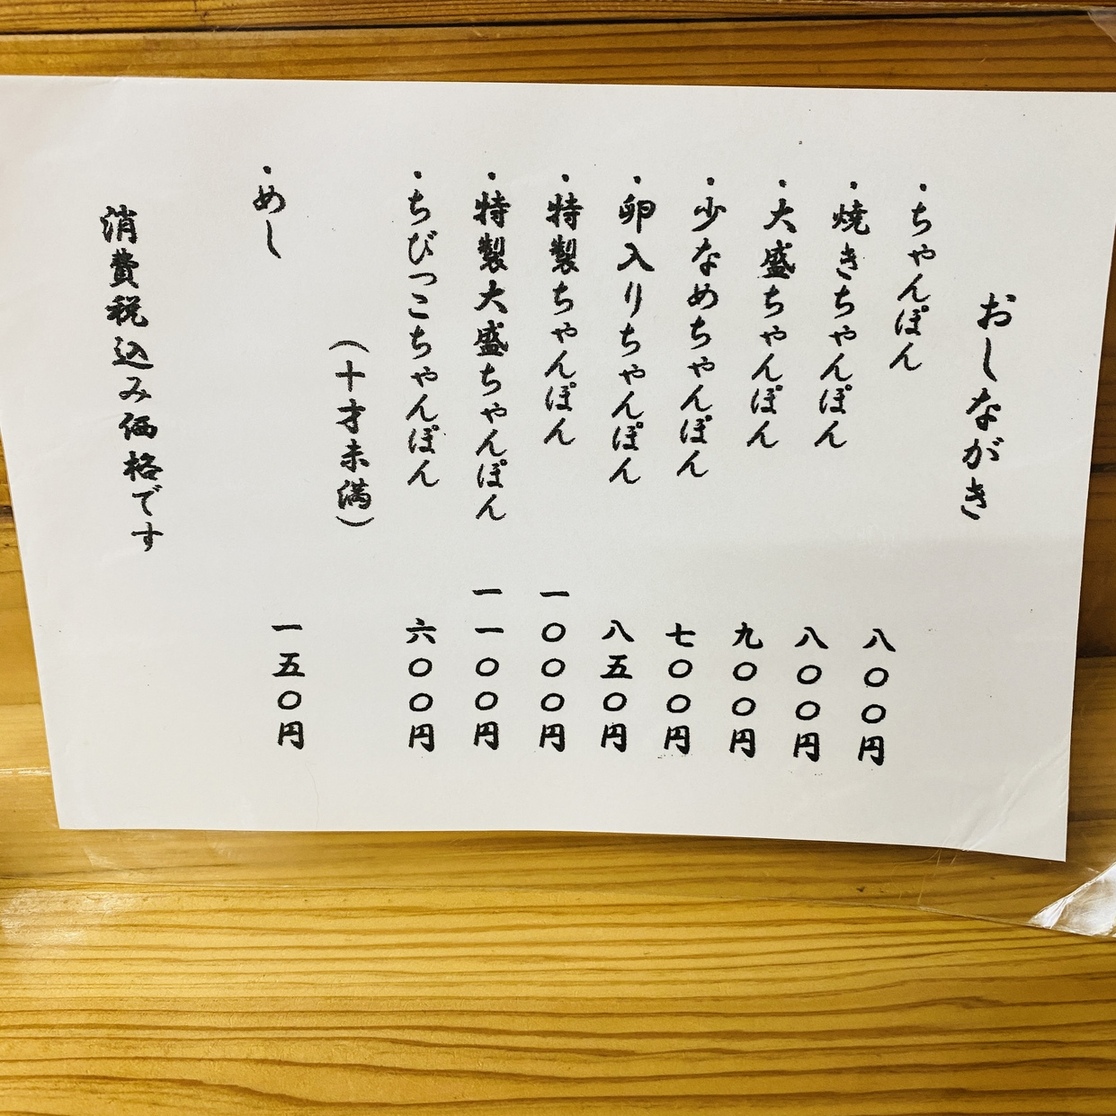 おしながき
・ちゃんぽん 八〇〇円
・焼きちゃんぽん 八〇〇円
・大盛ちゃんぽん 九〇〇円
・少なめちゃんぽん 七〇〇円
・卵入りちゃんぽん 八五〇円
・特製ちゃんぽん 一〇〇〇円
・特製大盛ちゃんぽん 一一〇〇円
・ちびっこちゃんぽん 六〇〇円
（十才未満）
・めし 一五〇円
消費税込み価格です